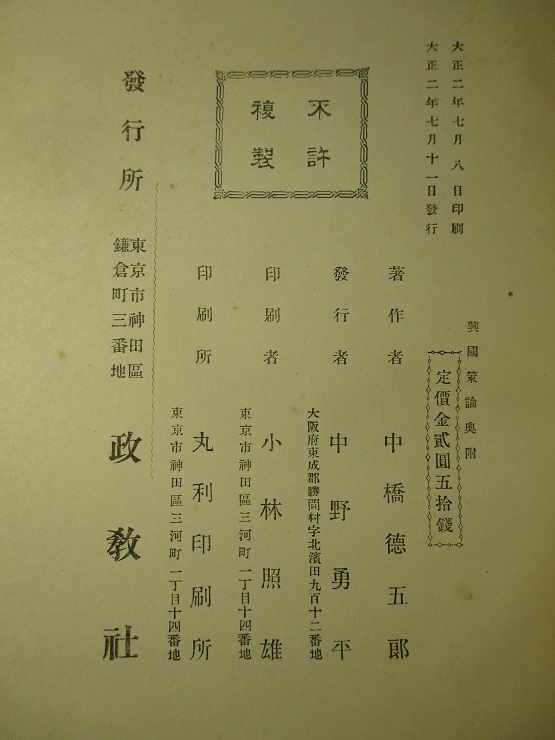 大正二年七月八日印刷
大正二年七月十一日發行
興國策論奧附
定價金貳圓五拾錢
不許
複製
著作者 中橋德五郎
發行者 中野勇平
大阪府東成郡勝間村字北濱田九百十二番地
印刷者 小林照雄
東京市神田區三河町一丁目十四番地
印刷所 丸利印刷所
東京市神田區三河町一丁目十四番地
發行所
東京市神田區
鎌倉町三番地
政敎社